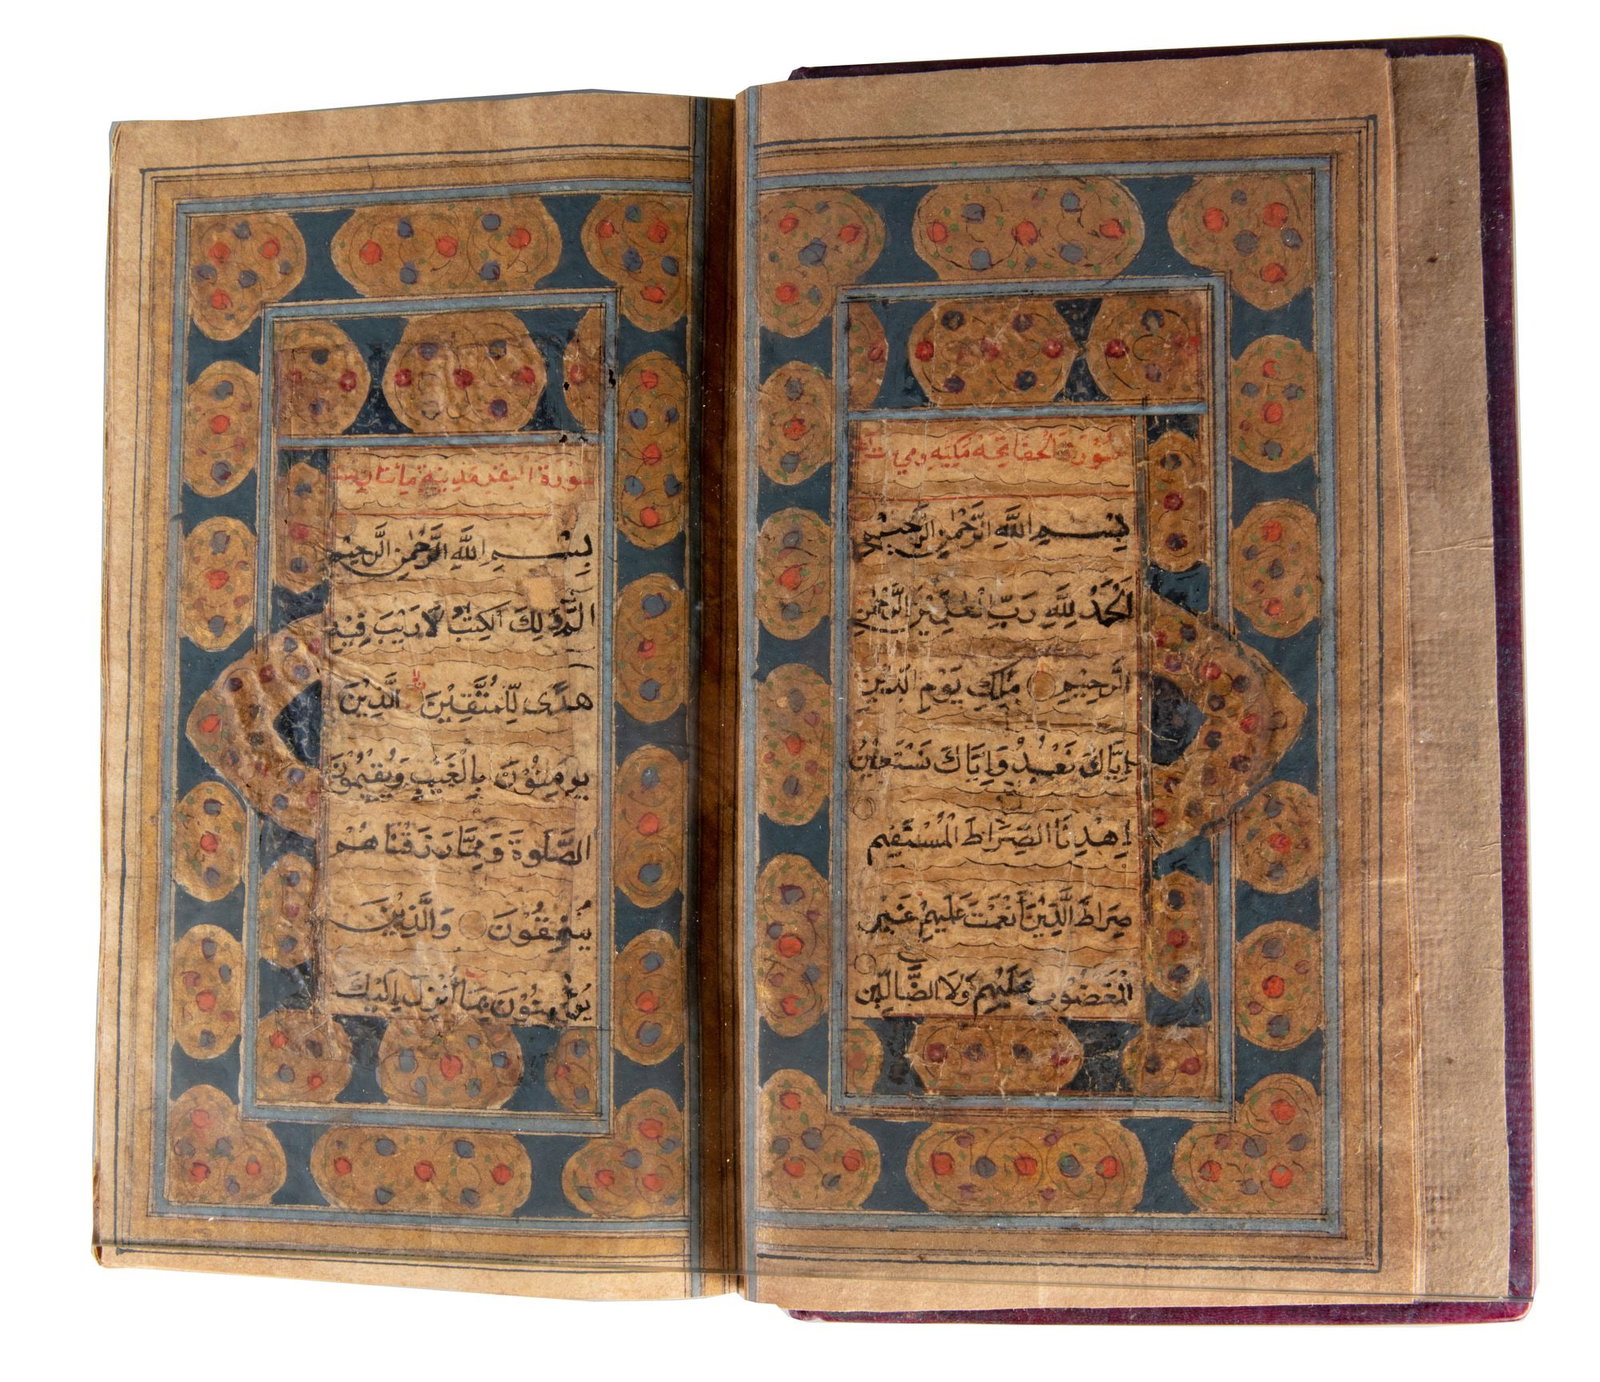 سورة الفاتحة مكية وهي
بِسْمِ اللَّهِ الرَّحْمٰنِ الرَّحِيْمِ
اَلْحَمْدُ لِلَّهِ رَبِّ الْعٰلَمِيْنَ الرَّحْمٰنِ
الرَّحِيْمِ مٰلِكِ يَوْمِ الدِّيْنِ
اِيَّاكَ نَعْبُدُ وَاِيَّاكَ نَسْتَعِيْنُ
اِهْدِنَا الصِّرَاطَ الْمُسْتَقِيْمَ
صِرَاطَ الَّذِيْنَ أَنْعَمْتَ عَلَيْهِمْ غَيْرِ
الْمَغْضُوْبِ عَلَيْهِمْ وَلَا الضَّالِّيْنَ
سورة البقر مدنية مائتان
بِسْمِ اللَّهِ الرَّحْمٰنِ الرَّحِيْمِ
الٓمّٓ ذٰلِكَ الْكِتٰبُ لَا رَيْبَ فِيْهِ
هُدًى لِّلْمُتَّقِيْنَ الَّذِيْنَ
يُوْمِنُوْنَ بِالْغَيْبِ وَيُقِيْمُوْنَ
الصَّلٰوةَ وَمِمَّا رَزَقْنَاهُمْ
يُنْفِقُوْنَ وَالَّذِيْنَ
يُوْمِنُوْنَ بِمَا أُنْزِلَ اِلَيْكَ